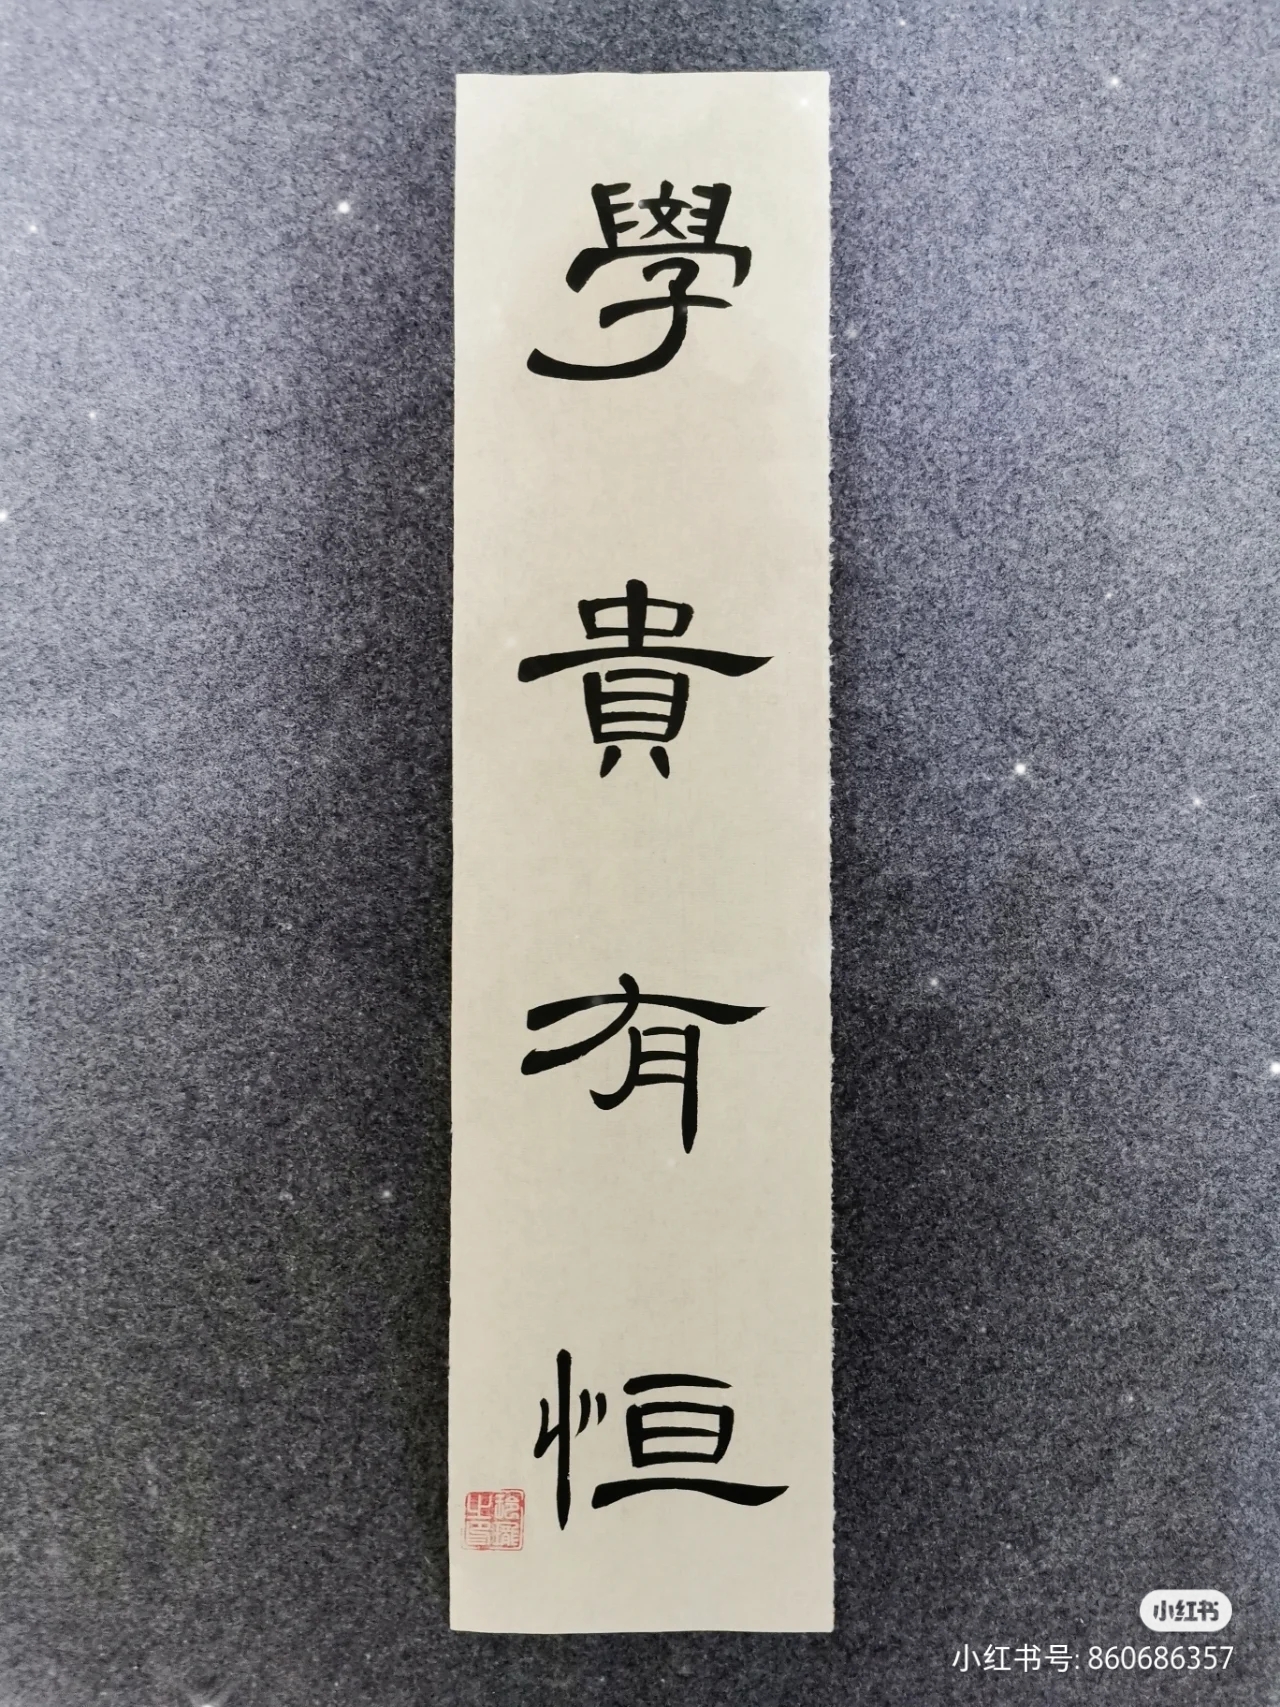 學貴有恒
小红书
小红书号: 860686357